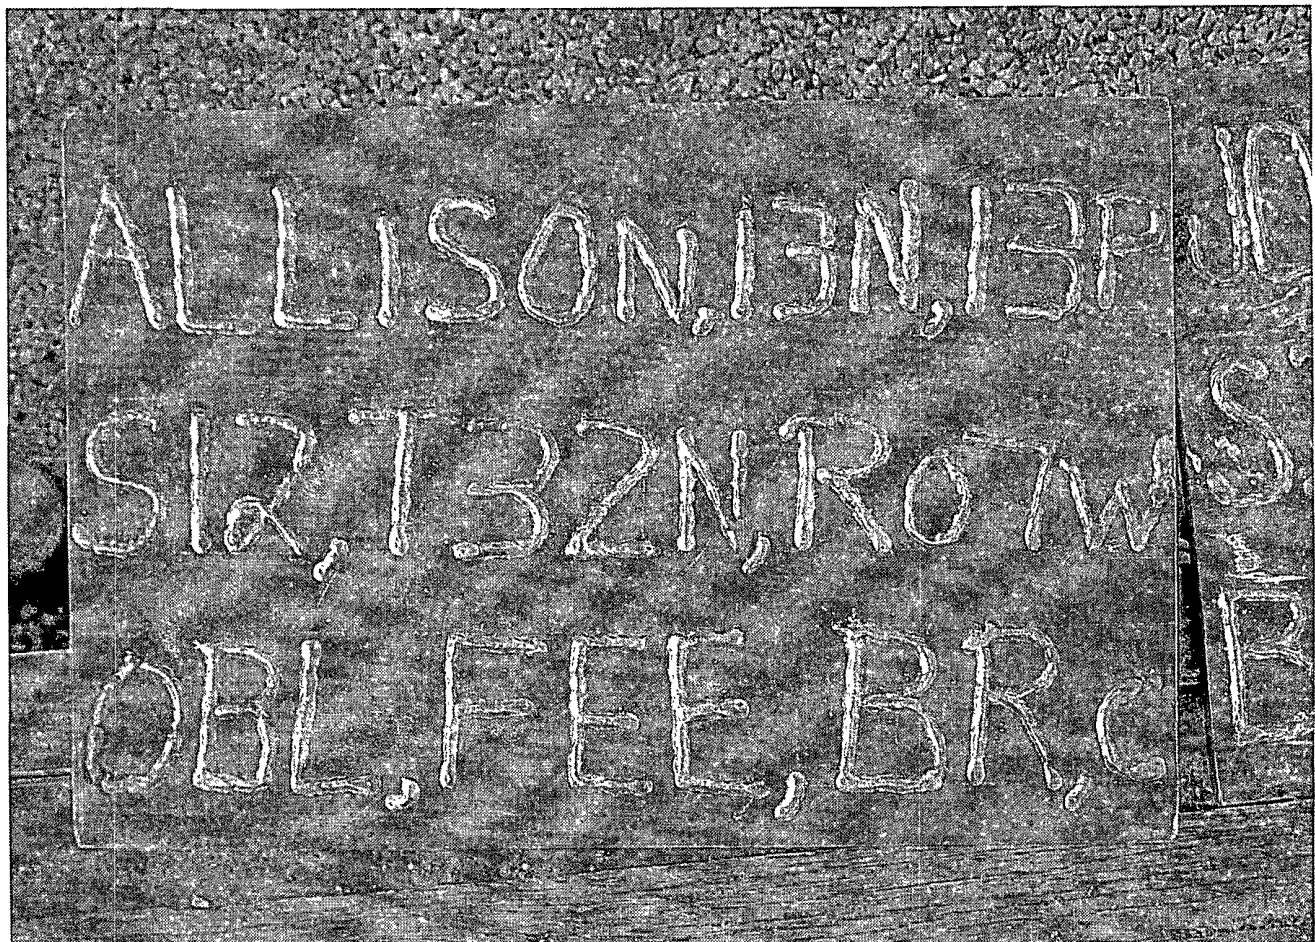 ALLISON, 13N, 13P
S12, T32N, R07W
OBL, FEE, BR, C